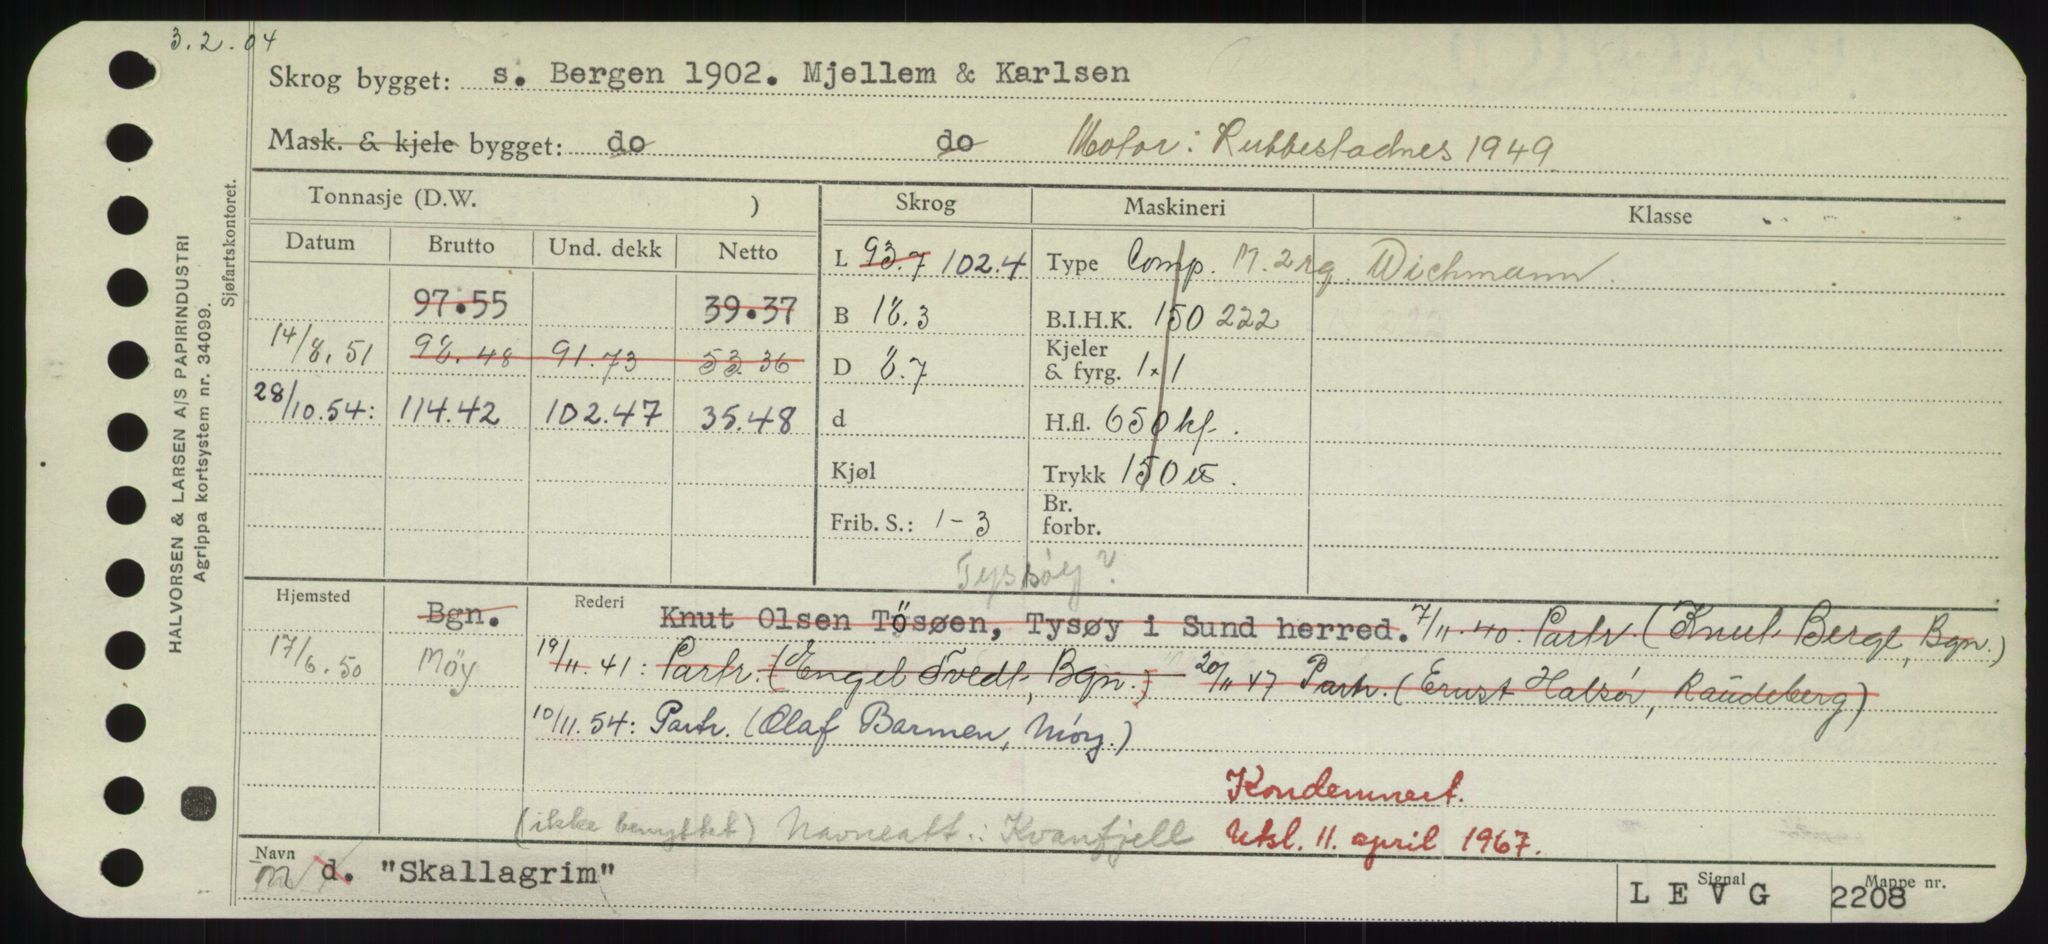 3.2.04
Skrog bygget: s. Bergen 1902. Mjellem & Karlsen
Mask. & kjele bygget: do do Motor: Rubbestadnes 1949
Tonnasje (D.W. ) Skrog Maskineri Klasse
Datum Brutto Und. dekk Netto
L 93.7 102.4 Type Comp. M. 2 Wichmann.
97.55 39.37 B 18.3 B.I.H.K. 150 222
14/8.51 98.48 91.73 53.36 D 8.7 Kjeler & fyrg. 1 x 1
28/10.54: 114.42 102.47 35.48 d H.fl. 650 kf.
Kjøl Trykk 150
Frib. S.: 1-3 Br. forbr.
Tyssøy?
Hjemsted Bgn. Rederi Knut Olsen Tösøen, Tysøy i Sund herred. 7/11.40. Partr. (Knut Berge, Bgn.)
17/6.50 Møy 19/11.41: Partr. (Engel Tvedt, Bgn.) 20/11 47 Partr. (Ernst Halsør, Raudeberg)
10/11.54: Partr. (Olaf Barmen, Móy.)
Kondemnert.
(ikke benyttet) Navneatt.: Kvanfjell Utsl. 11. april 1967.
Navn M d. "Skallagrim" Signal L E V G Mappe nr. 2208
HALVORSEN & LARSEN A/S PAPIRINDUSTRI
Agrippa kortsystem nr. 34099.
Sjøfartskontoret.